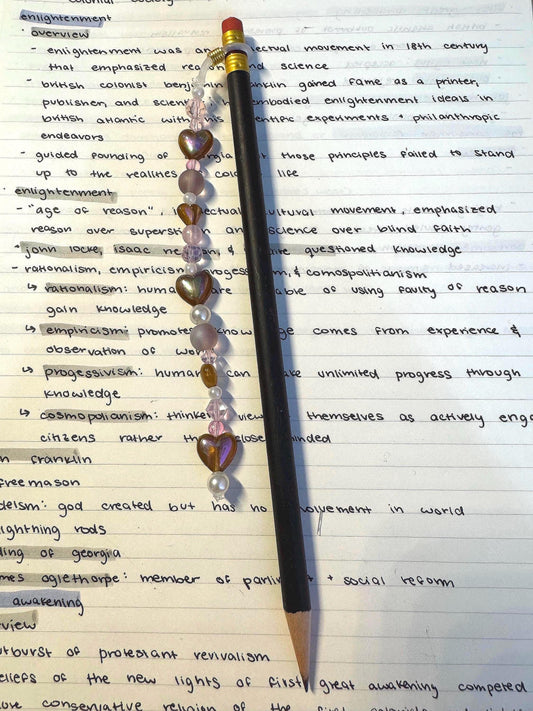 colonial society
enlightenment
· overview
- enlightenment was an lectual movement in 18th century
that emphasized reason and science
- british colonist benj klin gained fame as a printer,
publisher, and scient embodied enlightenment ideals in
british atlantic with his entific experiments + philanthropic
endeavors
- guided founding of rgia those principles failed to stand
up to the realities colo life
· enlightenment
- "age of reason", ectual ultural movement, emphasized
reason over superstition and science over blind faith
* john locke, isaac ne n, & questioned knowledge
- rationalism, empiricism, progess m, & comospolitanism
↳ rationalism: huma are able of using faulty of reason
gain knowledge
↳ empiricism: promotes know ge comes from experience &
observation of wor
↳ progessivism: human can ake unlimited progress through
knowledge
↳ cosmopolianism: thinke view themselves as actively eng
citizens rather th close minded
n franklin
freemason
deism: god created but has no movement in world
ightning rods
ding of georgia
mes oglethorpe: member of parli t + social reform
awakening
view
utburst of protestant revivalism
eliefs of the new lights of first great awakening competed
more conservative religion of the first